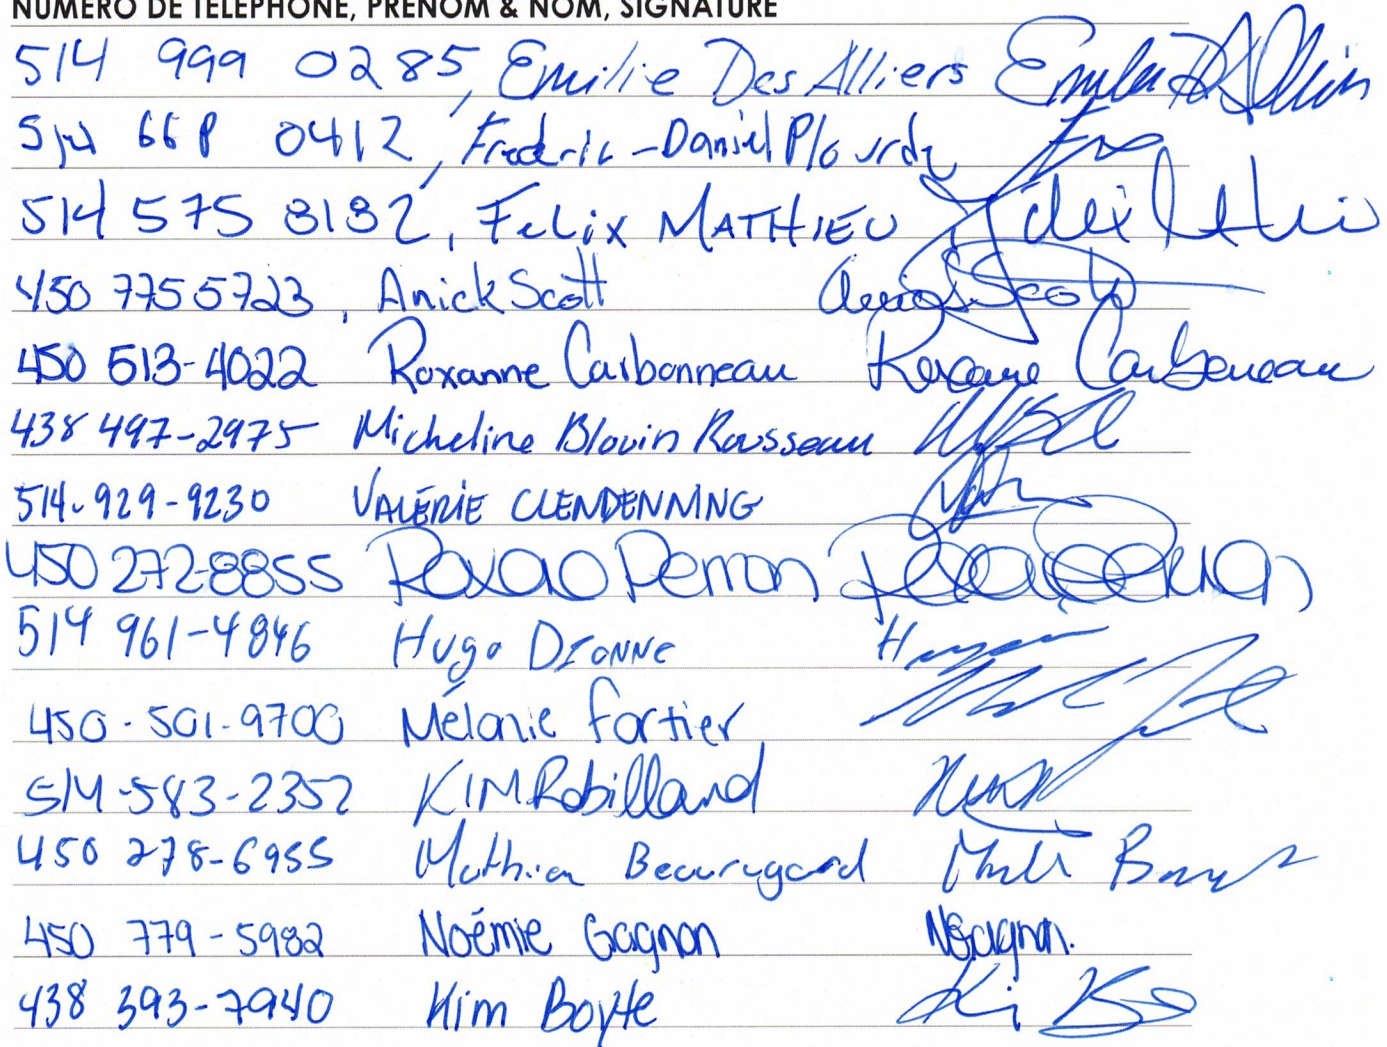 NUMÉRO DE TÉLÉPHONE, PRÉNOM & NOM, SIGNATURE
514 999 0285, Emilie Des Alliers
514 668 0412, Frederic-Daniel Plourde
514 575 8182, Felix MATHIEU
450 775 5723, Anick Scott Anick Scott
450 513-4022 Roxanne Carbonneau Roxane Carbonneau
438 497-2975 Micheline Blouin Rousseau
514-929-9230 VALÉRIE CLENDENNING
450 272-8855 Perron
514 961-4846 Hugo DIONNE Hugo
450-501-9700 Mélanie Fortier
514-583-2352 KIM Robillard
450 278-6955 Mathieu Beauregard
450 779-5982 Noémie Gagnon NGagnon.
438 393-7940 Kim Boyte